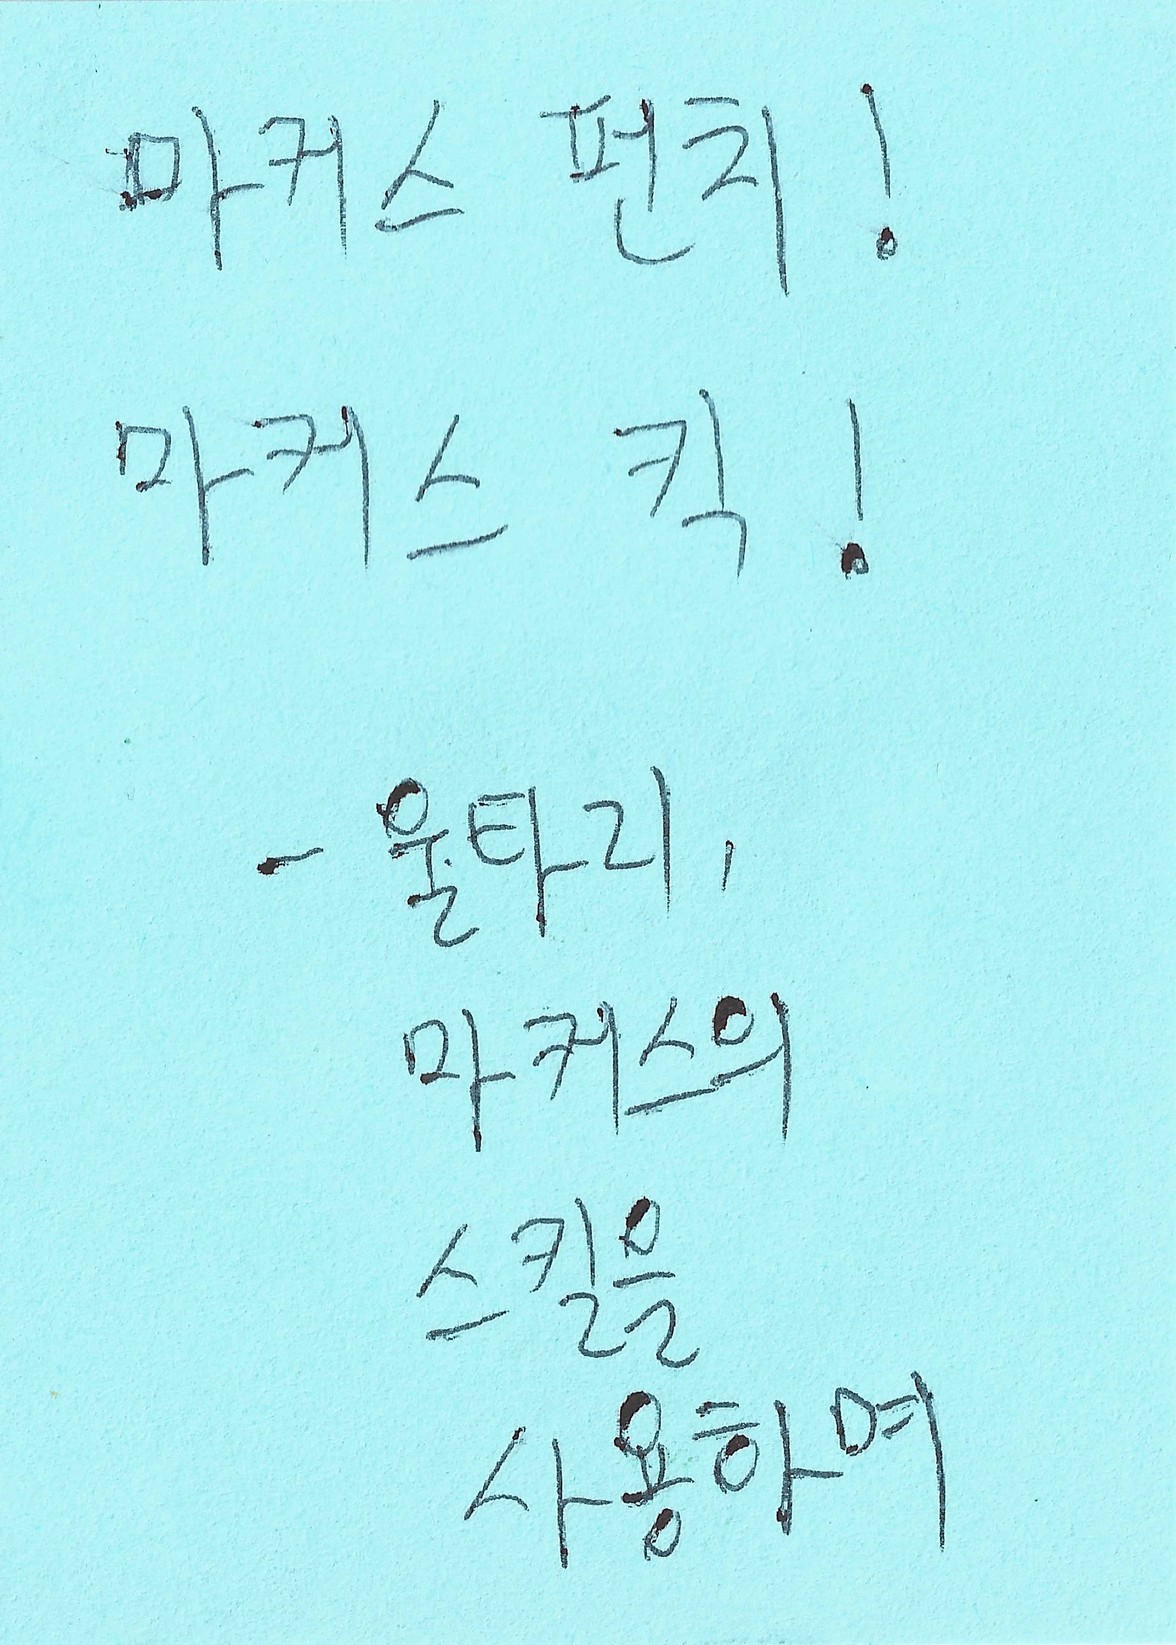 마커스 펀치!
마커스 킥!
- 울타리,
마커스의
스킬을
사용하며